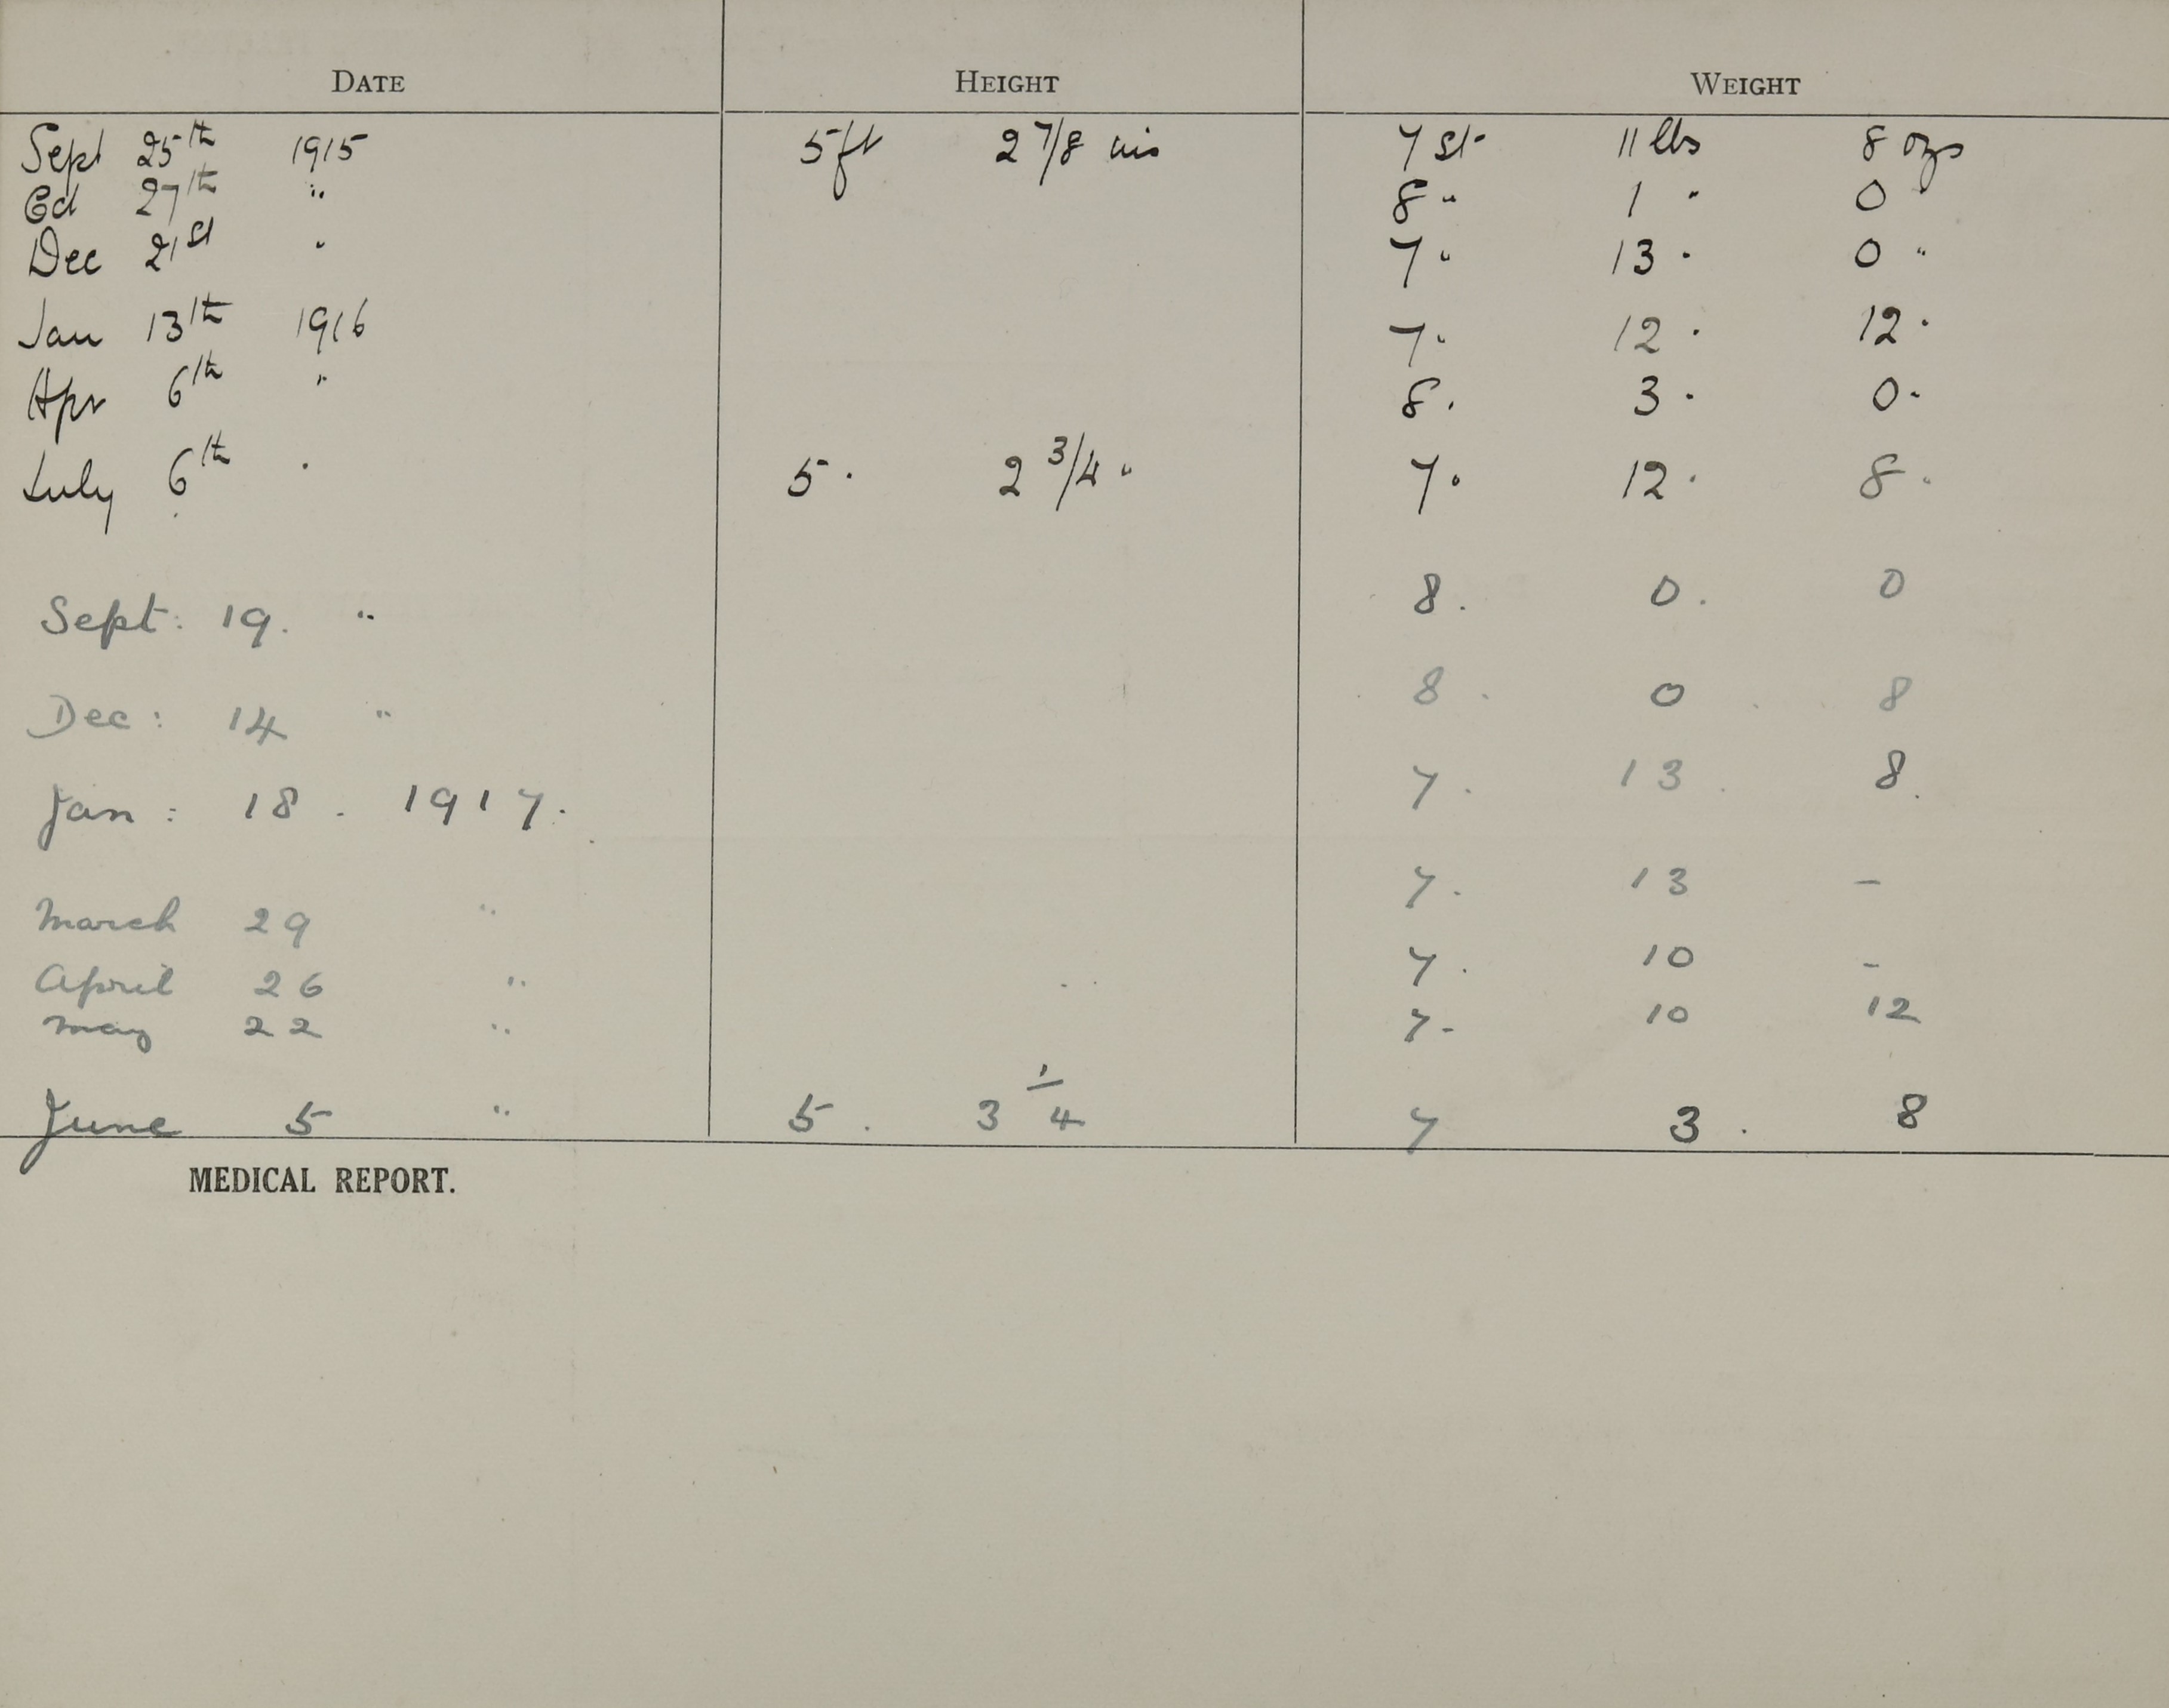 DATE HEIGHT WEIGHT
Sept 25th 1915 5ft 2 7/8 ins 7 St 11 lbs 8 ozs
Oct 27th " 8 " 1 " 0 "
Dec 21st " 7 " 13 " 0 "
Jan 13th 1916 7 " 12 " 12 "
Apr 6th " 8 " 3 " 0 "
July 6th " 5 " 2 3/4 " 7 " 12 " 8 "
Sept: 19. " 8. 0. 0
Dec: 14 " 8. 0. 8
Jan: 18. 1917. 7. 13. 8.
March 29 " 7. 13 -
April 26 " 7. 10 -
May 22 " 7- 10 12
June 5 " 5. 3 1/4 7 3. 8
MEDICAL REPORT.